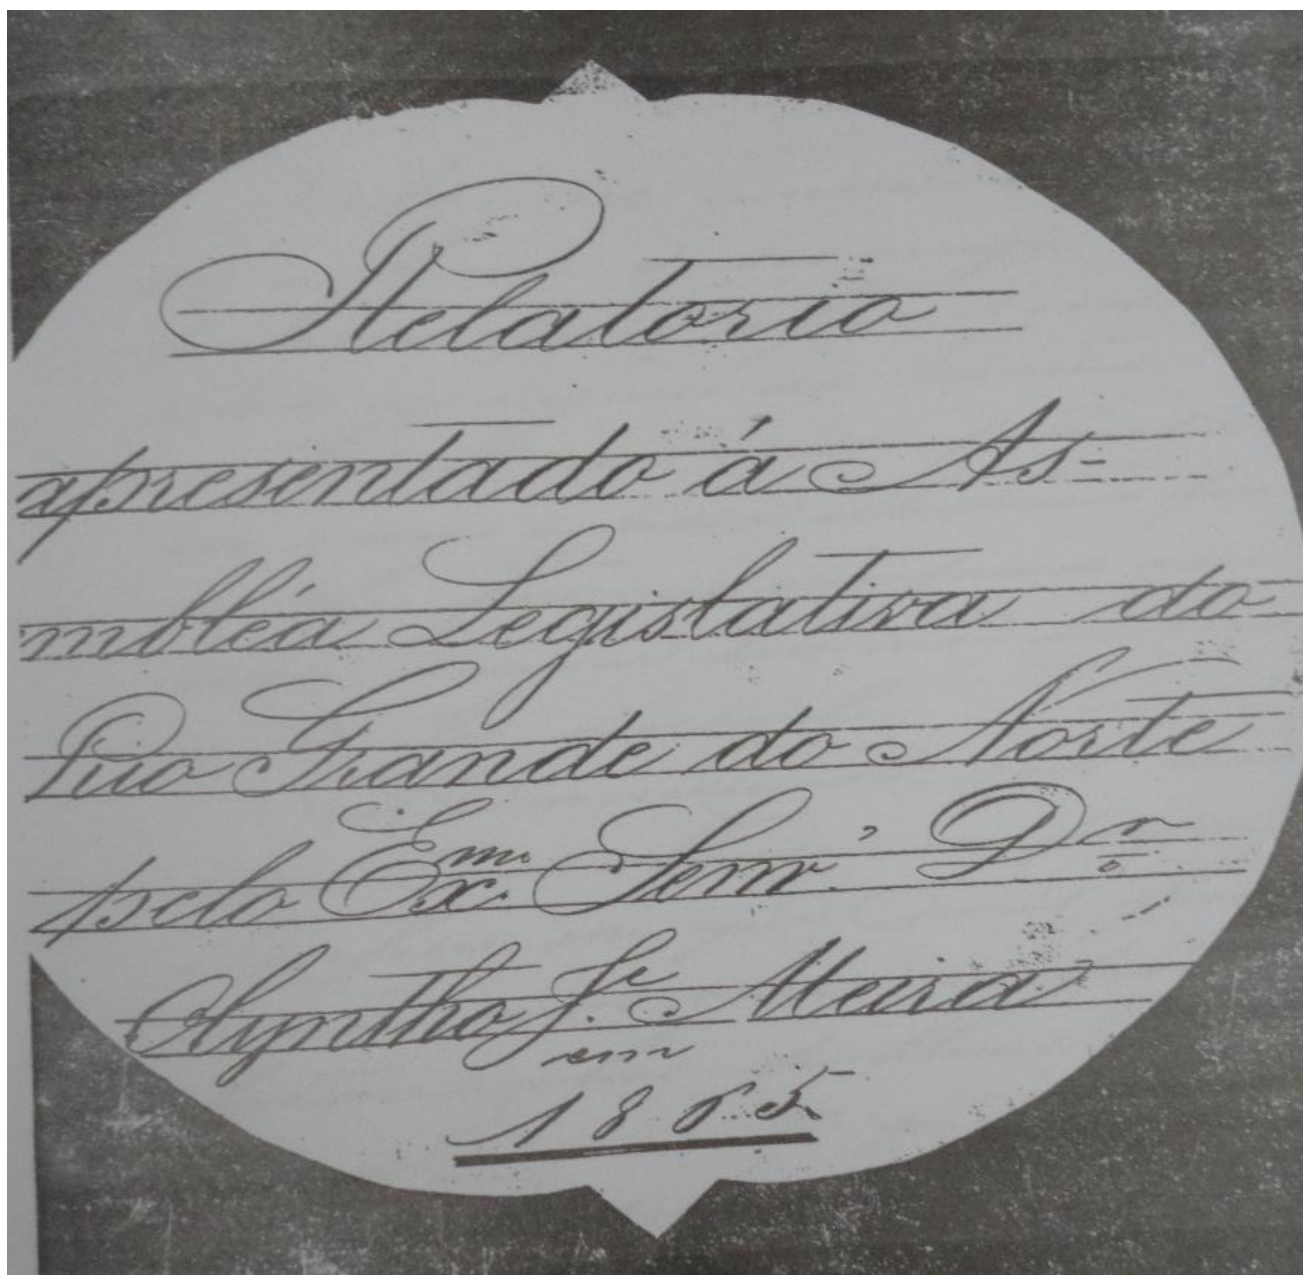 Relatorio
apresentado á As=
embléa Legislativa do
Rio Grande do Norte
pelo Exmo. Senr. Dr.
Olyntho J.e Meira
em
1865